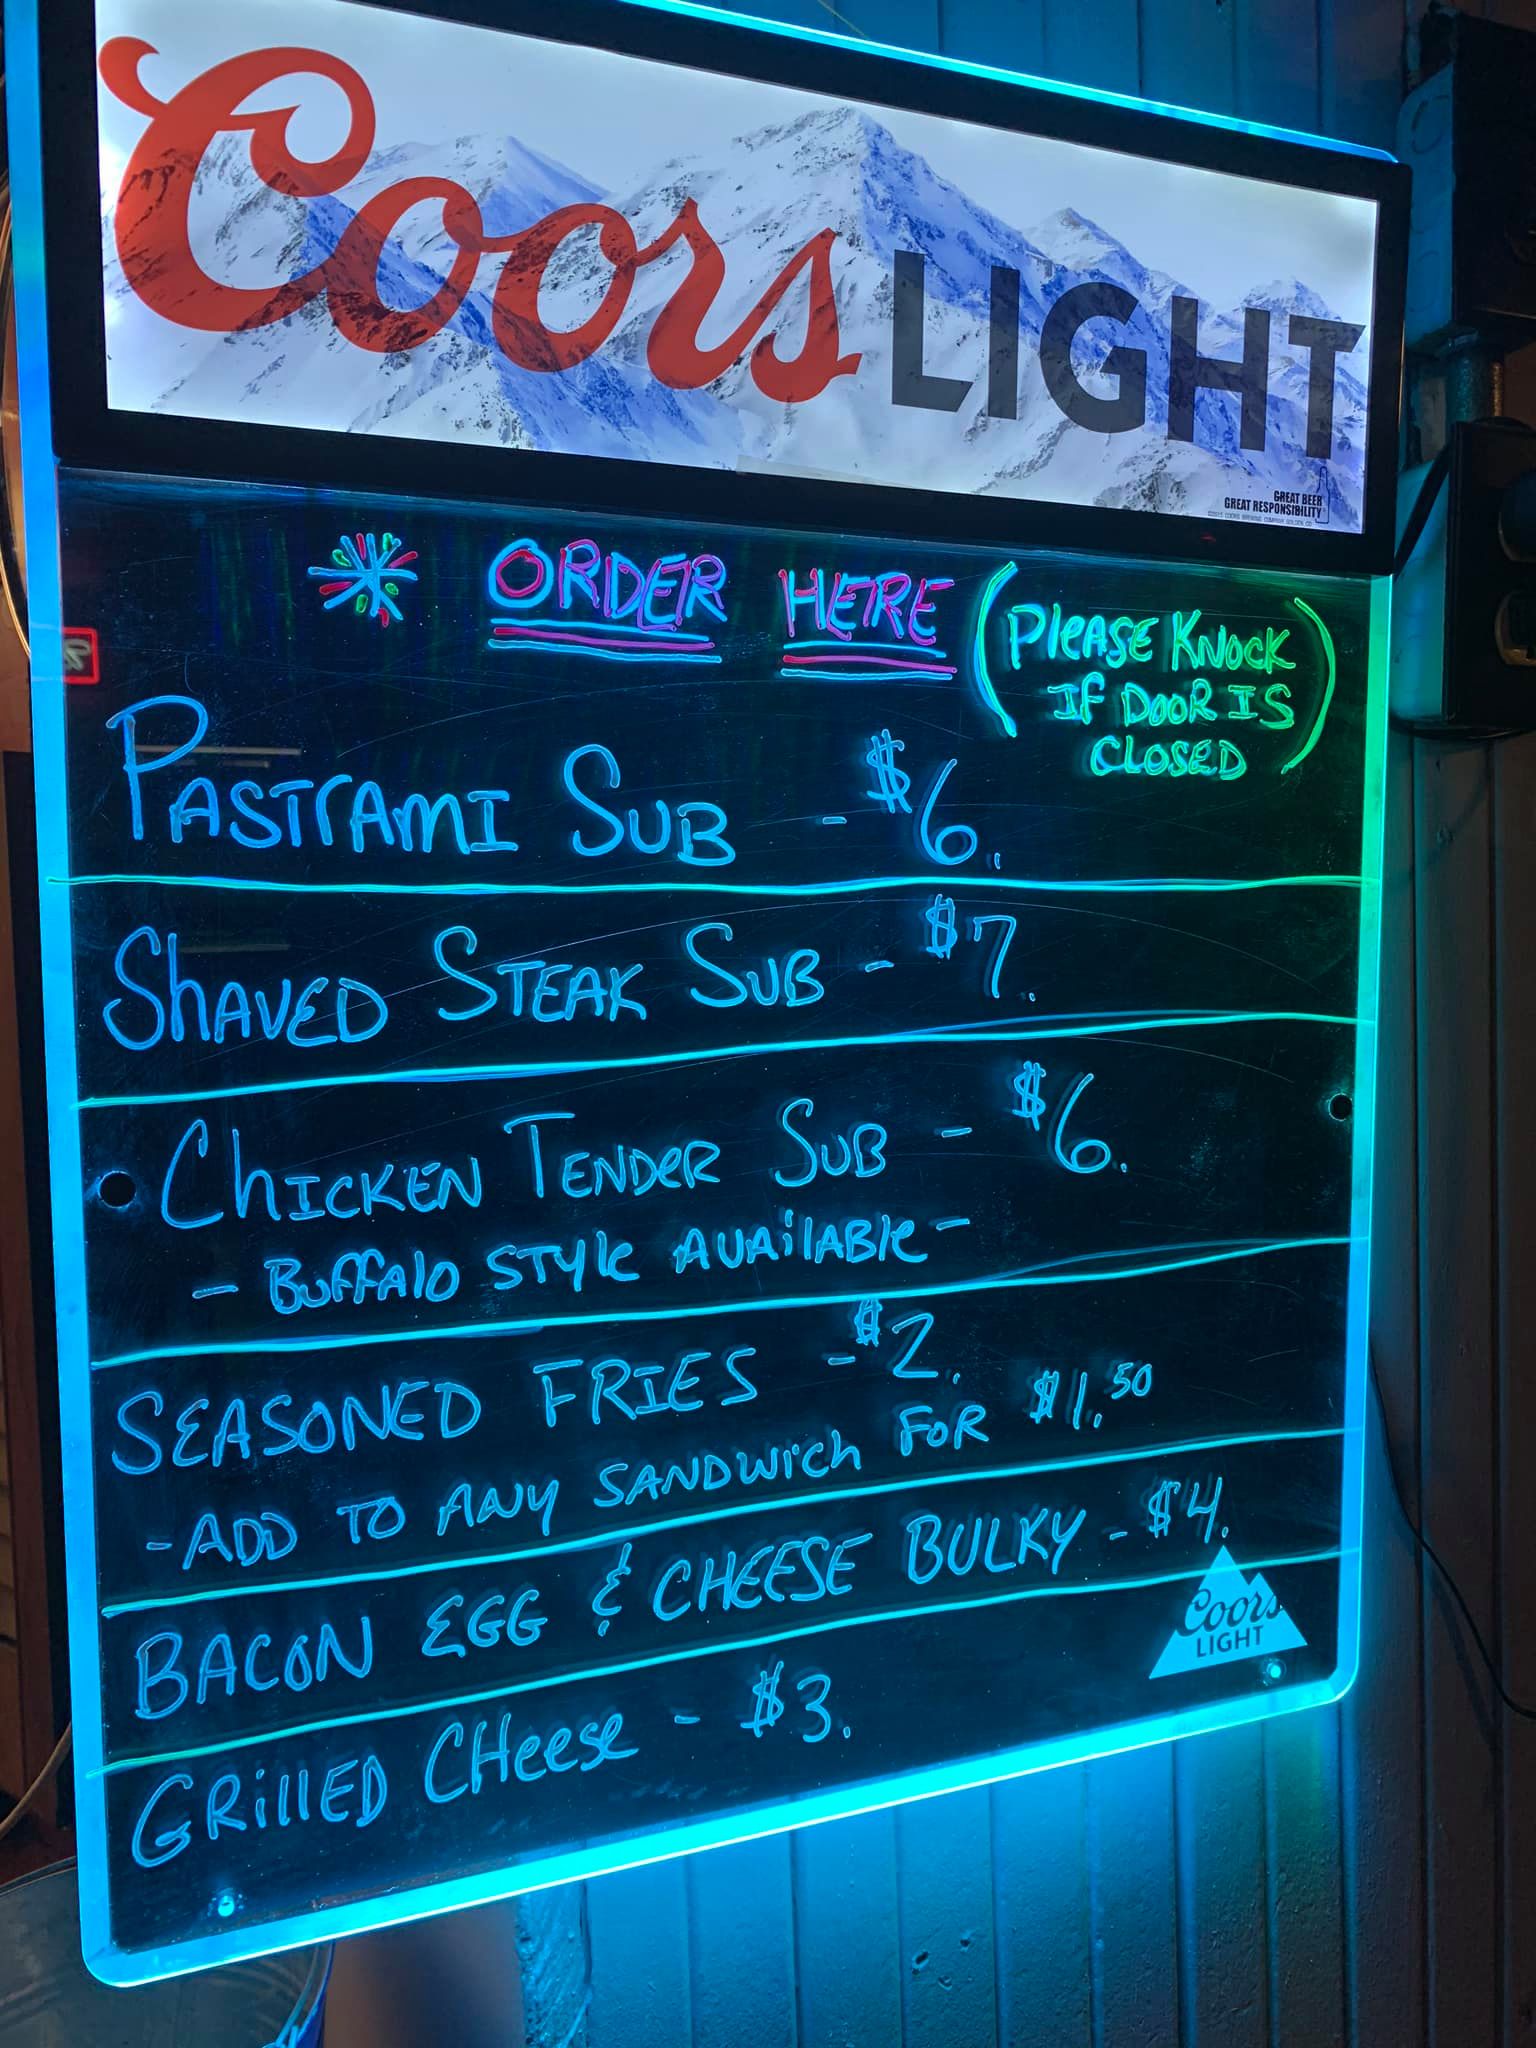 Coors LIGHT
GREAT BEER
GREAT RESPONSIBILITY
©2015 COORS BREWING COMPANY, GOLDEN, CO
* ORDER HERE (PlEASE KNOCK
IF DOOR IS
CLOSED)
PASTrAMI SUB - $6.
ShAVED STEAK SUB - $7.
ChICKEN TENDER SUB - $6.
- BuffAlO STYle AVAilABle -
SEASONED FRIES - $2.
- ADD TO ANY SANDWich FOR $1.50
BACON EGG & CHEESE BULKY - $4.
GRillED CHeese - $3.
Coors
LIGHT